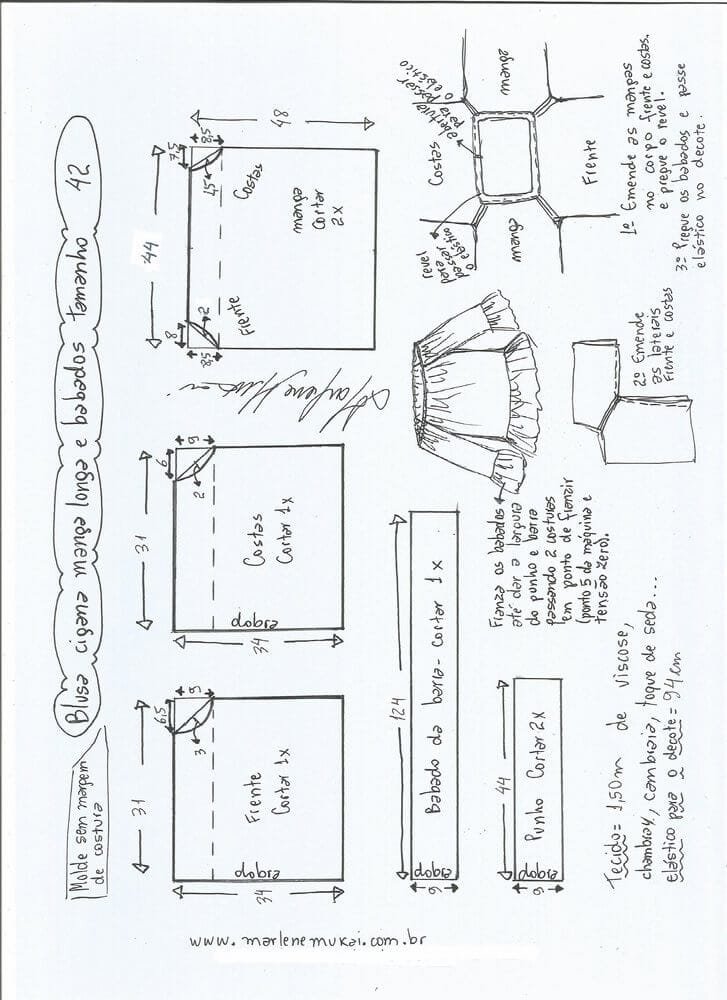 Molde sem margem
de costura
Blusa cigana manga longa e babados tamanho 42
31
6,5
9
3
34
Frente
Cortar 1x
dobra
31
6
9
2
34
Costas
Cortar 1x
dobra
44
8
8,5
2
Frente
7,5
8,5
1,5
Costas
48
manga
cortar
2x
Marlene Mukai
124
9
Babado da barra - cortar 1x
dobra
44
9
Punho Cortar 2x
dobra
Franza os babados
até dar a largura
do punho e barra
passando 2 costuras
em ponto de franzir
(ponto 5 da máquina e
tensão zero).
Costas
manga
Frente
manga
abertura
para
passar
o elástico
revel
para
passar
o elástico
1º Emende as mangas
no corpo frente e costas.
e pregue o revel.
2º Emende
as laterais
frente e costas
3º Pregue os babados e passe
elástico no decote.
Tecido = 1,50m de viscose,
chambray, cambraia, toque de seda...
elástico para o decote = 94cm
www.marlenemukai.com.br